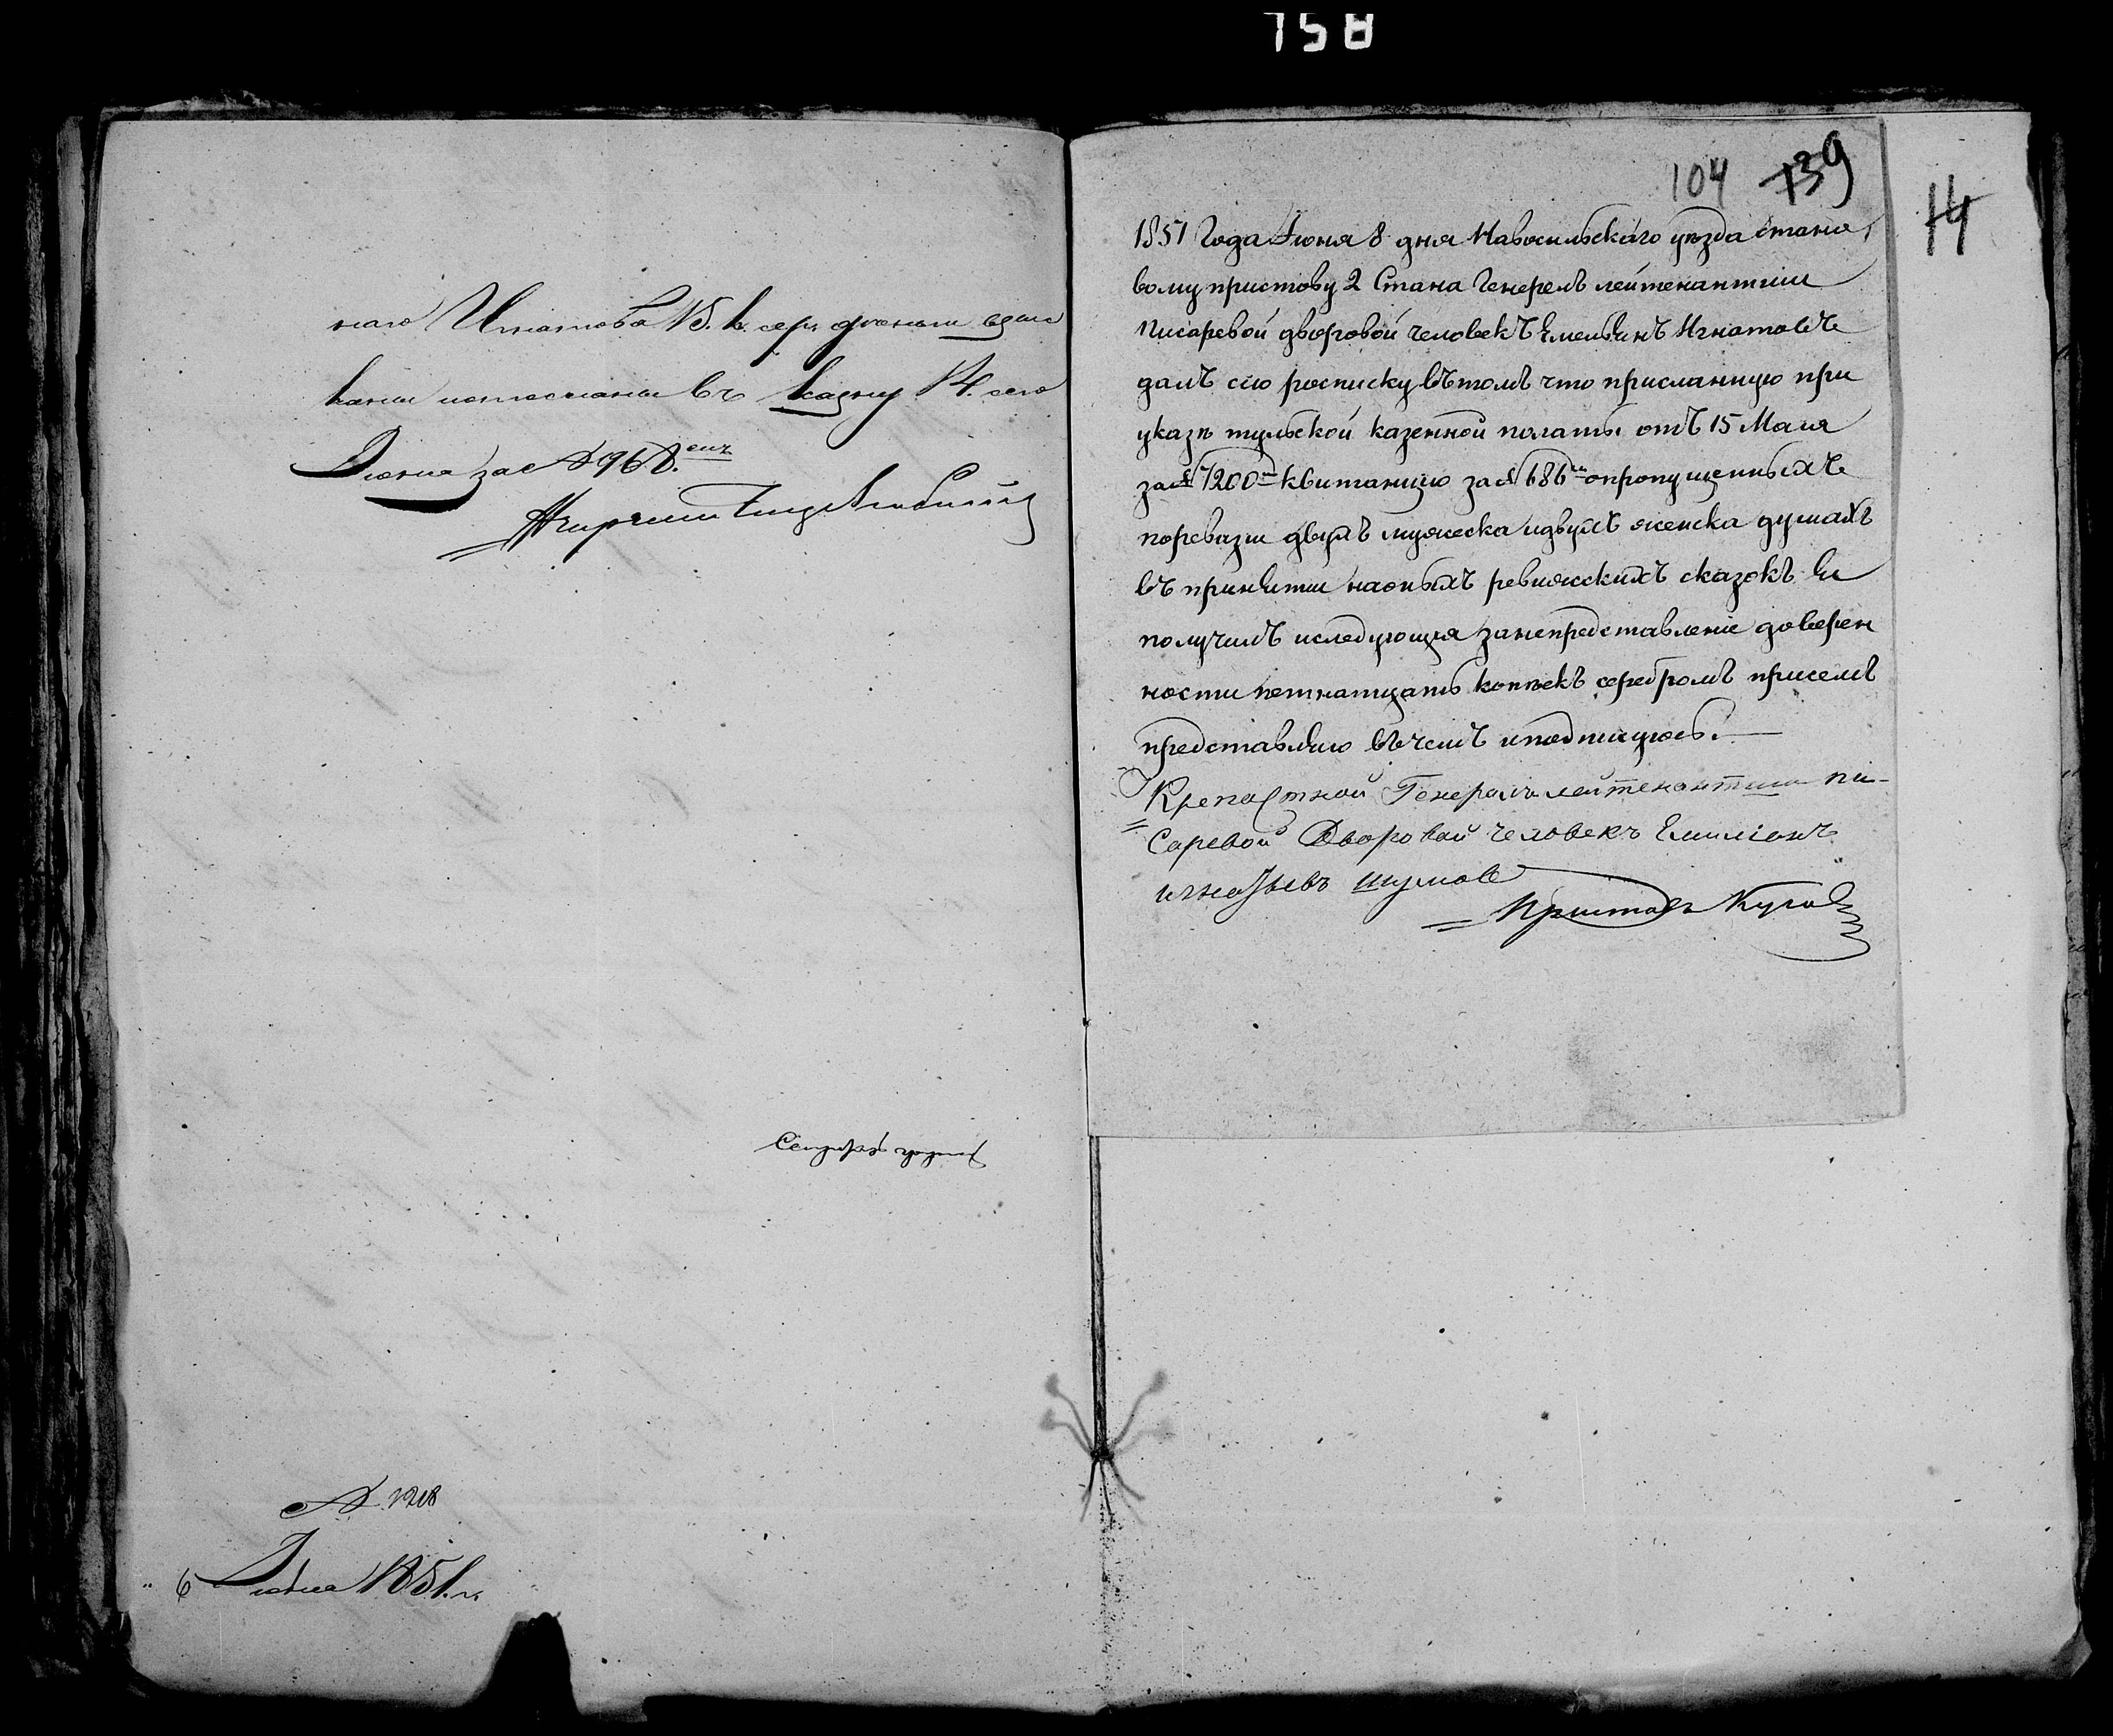 758
наго Игнатова 15. к. сер. деньги взыс
каны и отосланы въ казну 14. сего
Июня за № 968.
№ 1218
6 Июня 1851. г.
104 139
14
1851 Года Июня 8 дня Навосильскаго уѣзда стано,
вому приставу 2 Стана Генерелъ лейтенантши
Писаревой дворовой человекъ Емельянъ Игнатовъ
далъ сію росписку вътомъ что присланную при
указѣ тульской казенной палаты отъ 15 Маия
за № 7200 квитанцию за № 686 опропущенныхъ
поревизи двухъ мужеска идвухъ женска душахъ
въ принятии наоныхъ ревижскихъ сказокъ я
получилъ иследующия занепредставление доверен
ности петнатцать копѣекъ серебромъ присемъ
представляю въчемъ иподписуюсь.
Крепастной Генералъ лейтенантши пи-
Саревой Дворовай человекъ Емилианъ
игнатьевъ шумов
Приставъ